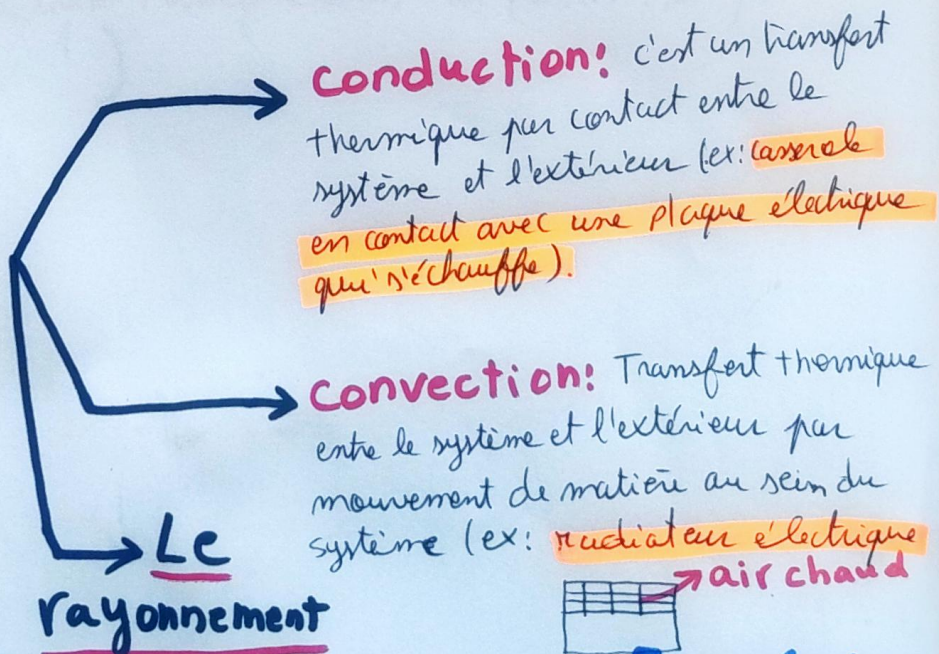 conduction: c'est un transfert
thermique par contact entre le
système et l'extérieur (ex: casserole
en contact avec une plaque électrique
qui s'échauffe).
convection: Transfert thermique
entre le système et l'extérieur par
mouvement de matière au sein du
système (ex: radiateur électrique
air chaud
Le
rayonnement